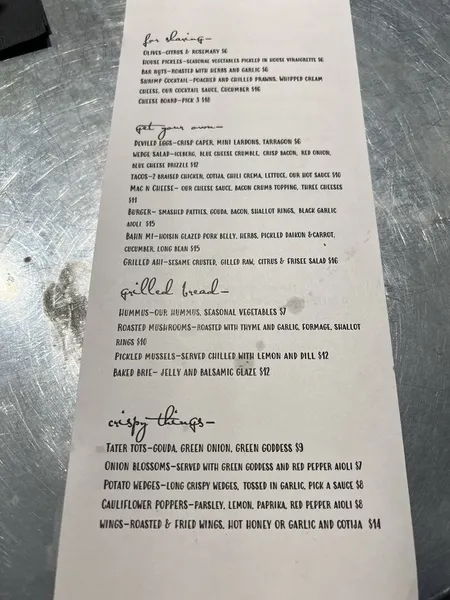 for sharing-
OLIVES-CITRUS & ROSEMARY $6
HOUSE PICKLES-SEASONAL VEGETABLES PICKLED IN HOUSE VINAIGRETTE $6
BAR NUTS-ROASTED WITH HERBS AND GARLIC $6
SHRIMP COCKTAIL-POACHED AND CHILLED PRAWNS, WHIPPED CREAM
CHEESE, OUR COCKTAIL SAUCE, CUCUMBER $16
CHEESE BOARD-PICK 3 $18
get your own-
DEVILED EGGS-CRISP CAPER, MINI LARDONS, TARRAGON $6
WEDGE SALAD-ICEBERG, BLUE CHEESE CRUMBLE, CRISP BACON, RED ONION,
BLUE CHEESE DRIZZLE $12
TACOS-2 BRAISED CHICKEN, COTIJA, CHILI CREMA, LETTUCE, OUR HOT SAUCE $10
MAC N CHEESE- OUR CHEESE SAUCE, BACON CRUMB TOPPING, THREE CHEESES
$11
BURGER- SMASHED PATTIES, GOUDA, BACON, SHALLOT RINGS, BLACK GARLIC
AIOLI $15
BAHN MI-HOISIN GLAZED PORK BELLY, HERBS, PICKLED DAIKON &CARROT,
CUCUMBER, LONG BEAN $15
GRILLED AHI-SESAME CRUSTED, GILLED RAW, CITRUS & FRISEE SALAD $16
grilled bread-
HUMMUS-OUR HUMMUS, SEASONAL VEGETABLES $7
ROASTED MUSHROOMS-ROASTED WITH THYME AND GARLIC, FORMAGE, SHALLOT
RINGS $10
PICKLED MUSSELS-SERVED CHILLED WITH LEMON AND DILL $12
BAKED BRIE- JELLY AND BALSAMIC GLAZE $12
crispy things-
TATER TOTS-GOUDA, GREEN ONION, GREEN GODDESS $9
ONION BLOSSOMS-SERVED WITH GREEN GODDESS AND RED PEPPER AIOLI $7
POTATO WEDGES-LONG CRISPY WEDGES, TOSSED IN GARLIC, PICK A SAUCE $8
CAULIFLOWER POPPERS-PARSLEY, LEMON, PAPRIKA, RED PEPPER AIOLI $8
WINGS-ROASTED & FRIED WINGS, HOT HONEY OR GARLIC AND COTIJA $14